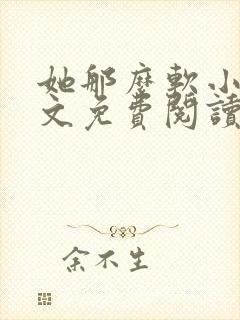 她那麼軟小
文免費閱讀
余不生